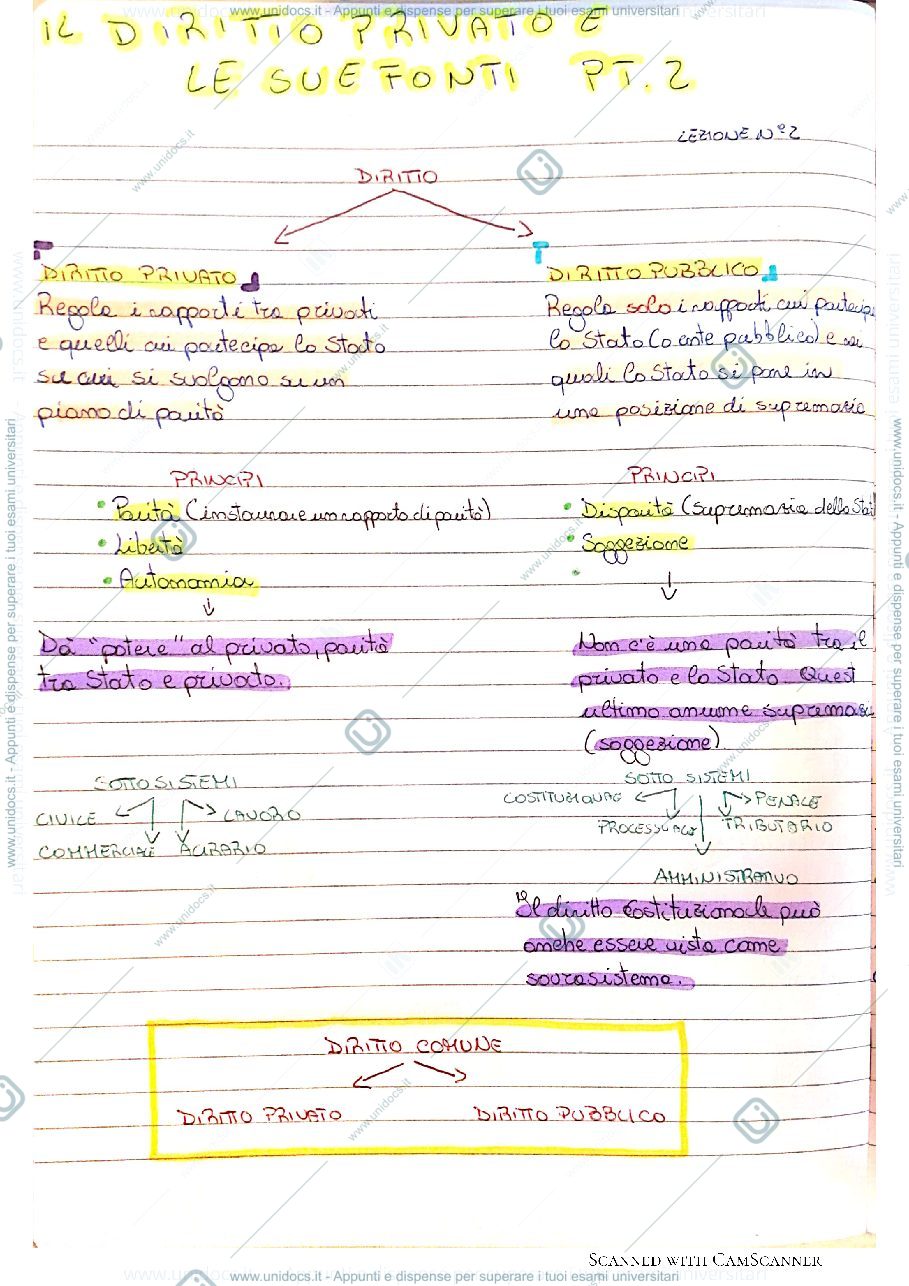 www.unidocs.it - Appunti e dispense per superare i tuoi esami universitari
IL DIRITTO PRIVATO E
LE SUE FONTI PT. 2
LEZIONE N°2
DIRITTO
DIRITTO PRIVATO
Regola i rapporti tra privati
e quelli cui partecipa lo Stato
su cui si svolgono su un
piano di parità
PRINCIPI
• Parità (instaurare un rapporto di parità)
• Libertà
• Autonomia
Dà "potere" al privato, parità
tra Stato e privato.
SOTTO SISTEMI
CIVILE LAVORO
COMMERCIALE AGRARIO
DIRITTO PUBBLICO
Regola solo i rapporti cui partecipa
lo Stato (o ente pubblico) e
quali lo Stato si pone in
una posizione di supremazia
PRINCIPI
• Disparità (supremazia dello Stat
• Soggezione
•
Non c'è una parità tra il
privato e lo Stato. Quest
ultimo assume supremazi
(soggezione)
SOTTO SISTEMI
COSTITUZIONALE PENALE
PROCESSUALE TRIBUTARIO
AMMINISTRATIVO
Il diritto costituzionale può
anche essere visto come
sovrasistema.
DIRITTO COMUNE
DIRITTO PRIVATO DIRITTO PUBBLICO
SCANNED WITH CAMSCANNER
www.unidocs.it - Appunti e dispense per superare i tuoi esami universitari